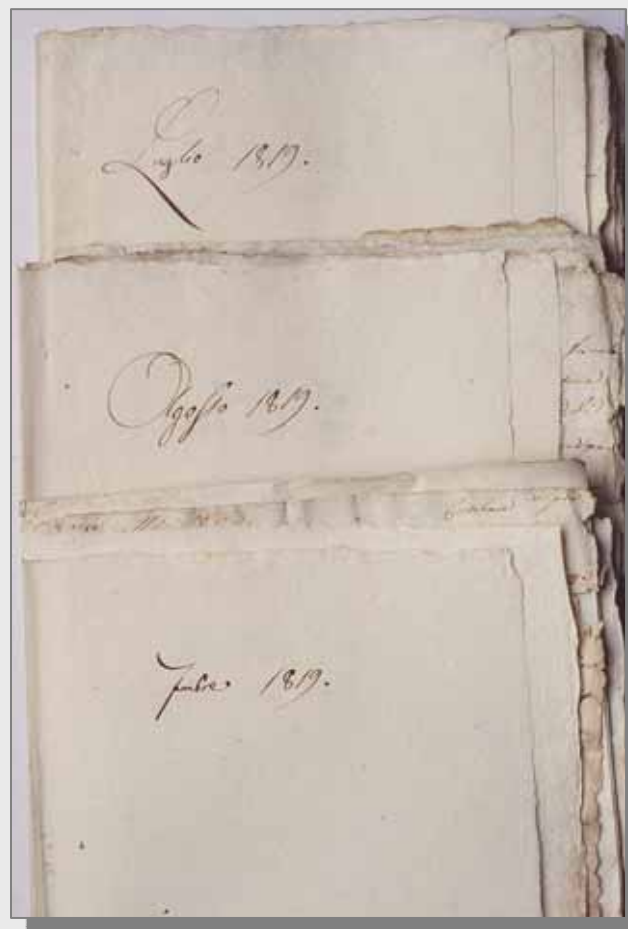 Luglio 1819.
Agosto 1819.
7mbre 1819.